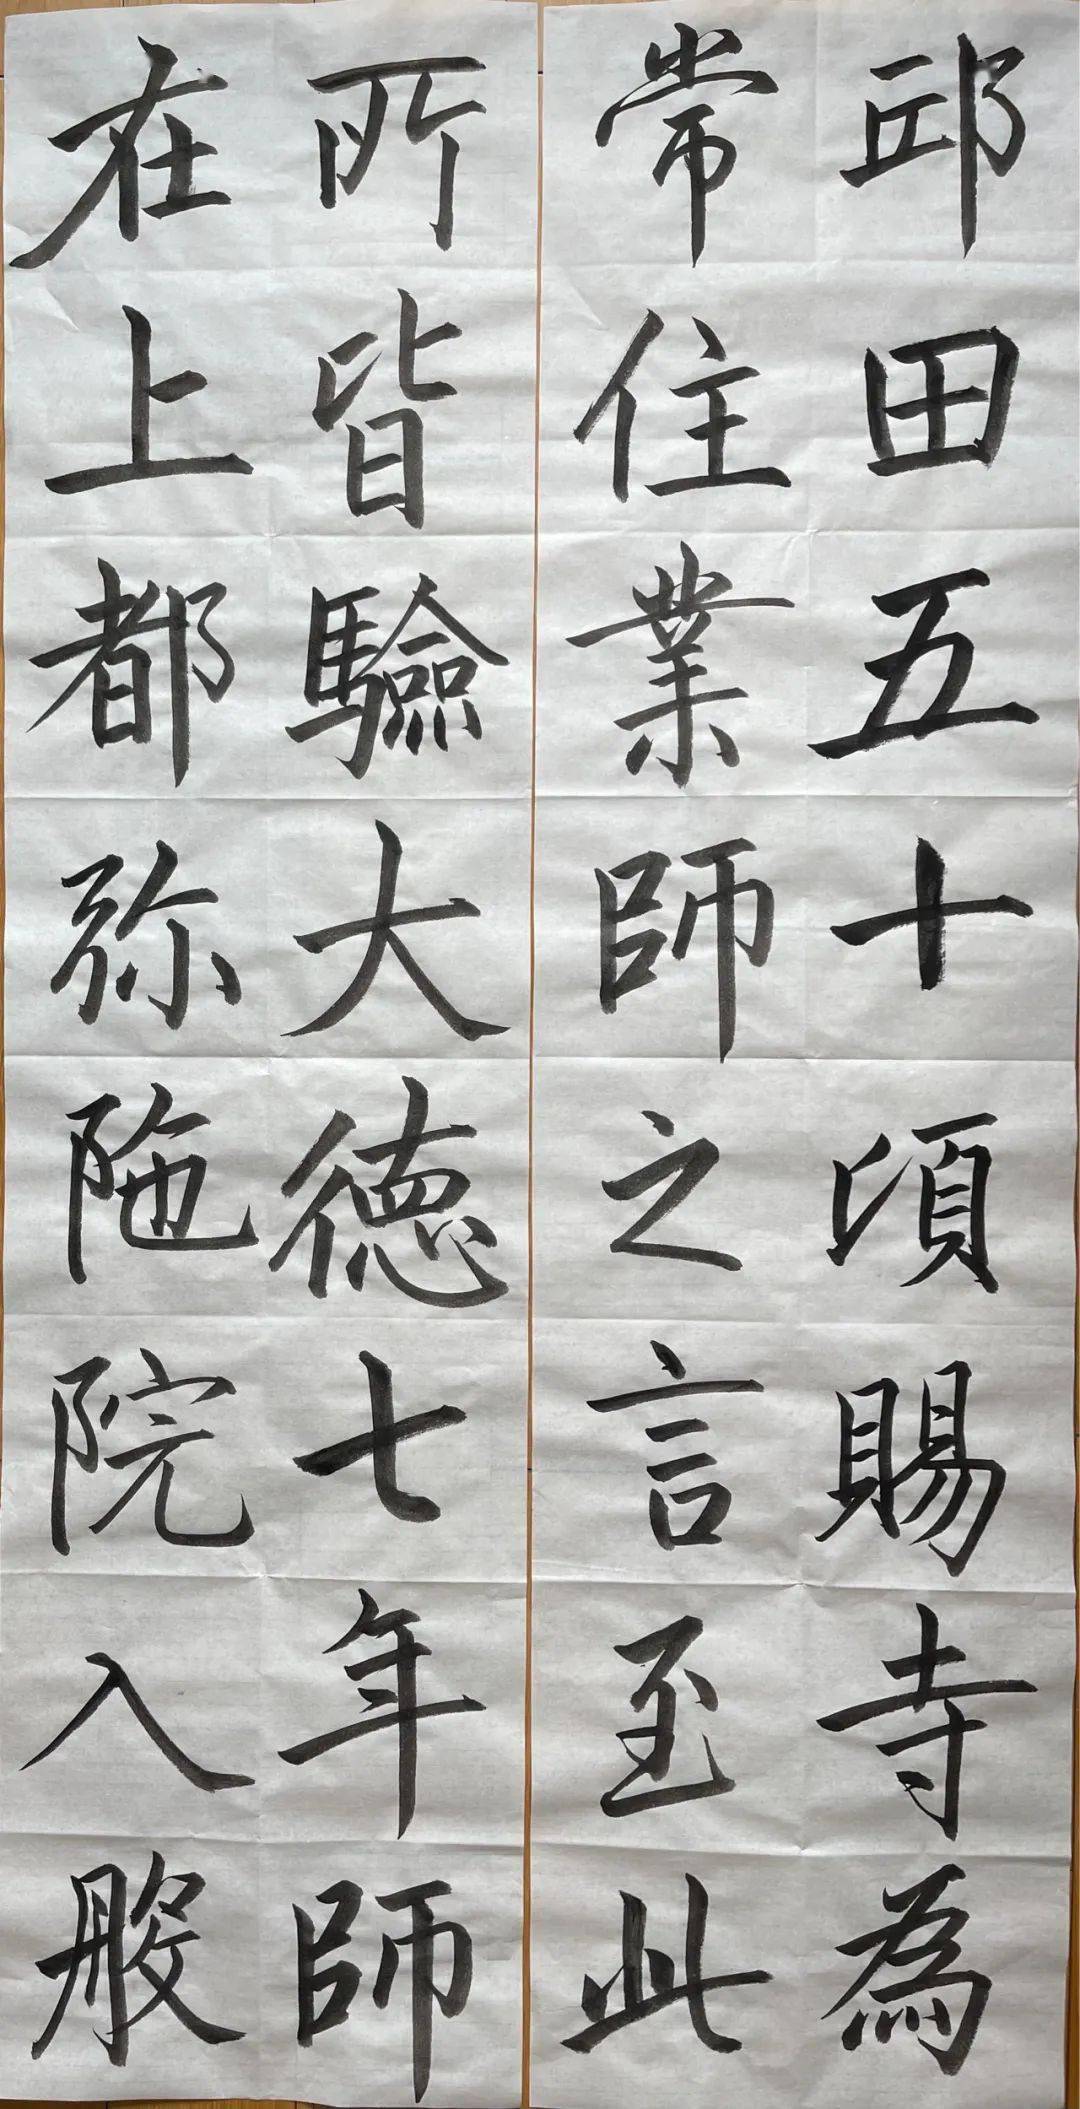 邱田五十頃賜寺為
常住業師之言至此
所皆驗大德七年師
在上都弥陁院入般